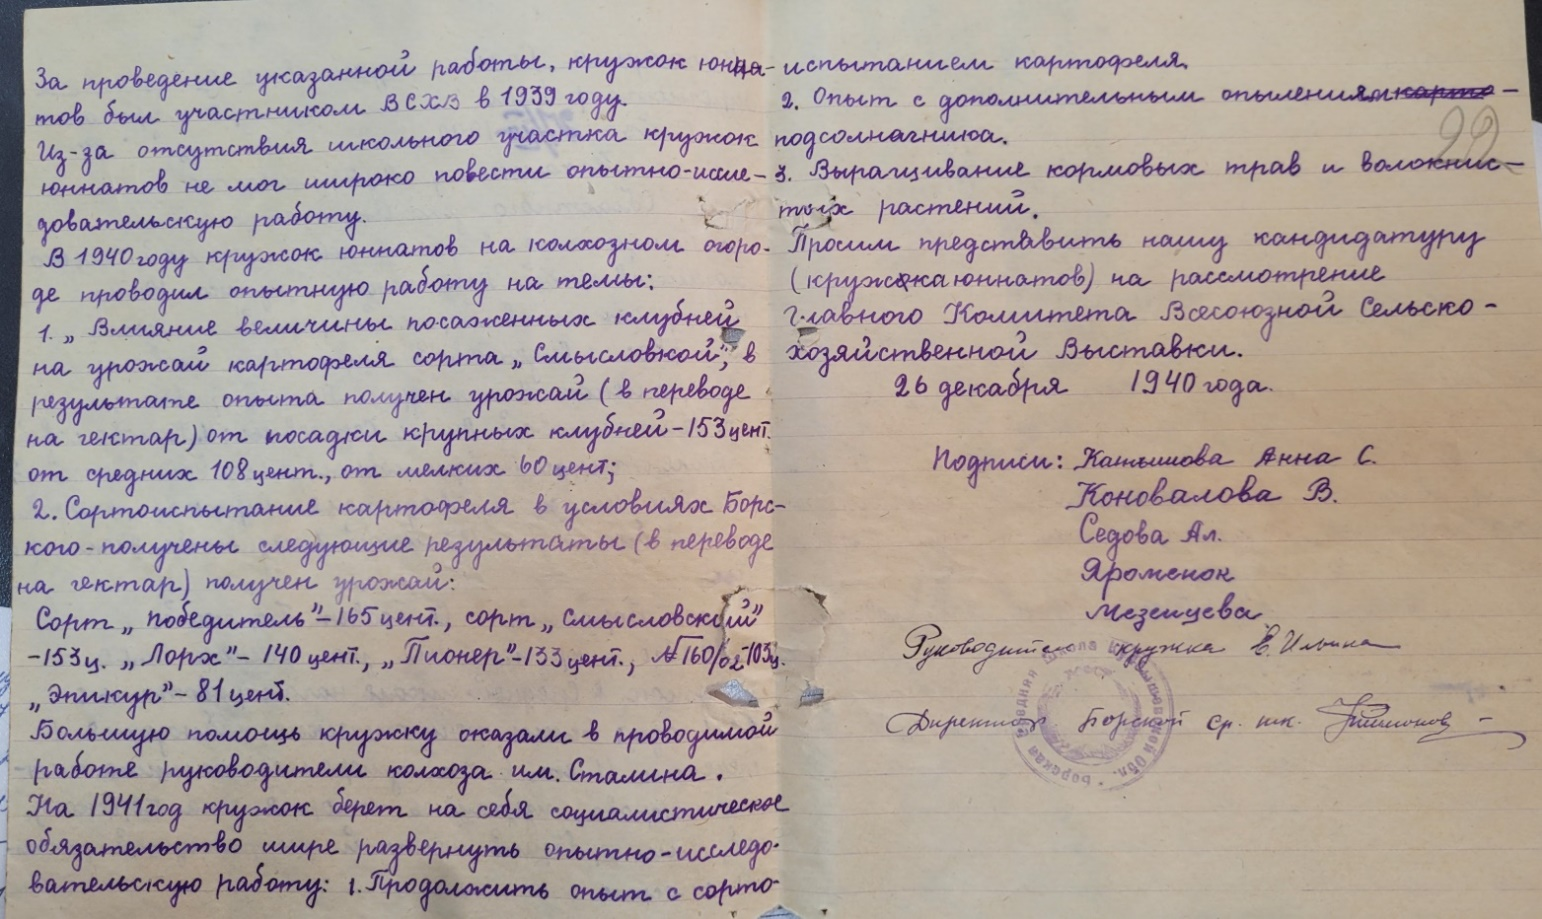 За проведение указанной работы, кружок юнна-
тов был участником ВСХВ в 1939 году.
Из-за отсутствия школьного участка кружок
юннатов не мог широко повести опытно-иссле-
довательскую работу.
В 1940 году кружок юннатов на колхозном огоро-
де проводил опытную работу на темы:
1. „Влияние величины посаженных клубней
на урожай картофеля сорта „Смысловкой", в
результате опыта получен урожай (в переводе
на гектар) от посадки крупных клубней - 153 цент.
от средних 108 цент., от мелких 60 цент;
2. Сортоиспытание картофеля в условиях Борс-
кого - получены следующие результаты (в переводе
на гектар) получен урожай:
Сорт „победитель" - 165 цент., сорт „Смысловский"
- 153 ц. „Лорх" - 140 цент., „Пионер" - 133 цент., №160/02 - 103 ц.
„Эпикур" - 81 цент.
Большую помощь кружку оказали в проводимой
работе руководители колхоза им. Сталина.
На 1941 год кружок берет на себя социалистическое
обязательство шире развернуть опытно-исследо-
вательскую работу: 1. Продолжить опыт с сорто-
испытанием картофеля.
2. Опыт с дополнительным опылением
подсолначниюа.
3. Выращивание кормовых трав и волокнис-
тых растений.
Просим представить нашу кандидатуру
(кружока юннатов) на рассмотрение
Главного Комитета Всесоюзной Сельско-
хозяйственной Выставки.
26 декабря 1940 года.
Подписи: Анна С.
Коновалова В.
Седова Ал.
Яроменок
Мезенцева
Руководитель кружка Е. Ильина
Директор Борской ср. шк.
Борская средняя школа Куйбышевской обл.
22